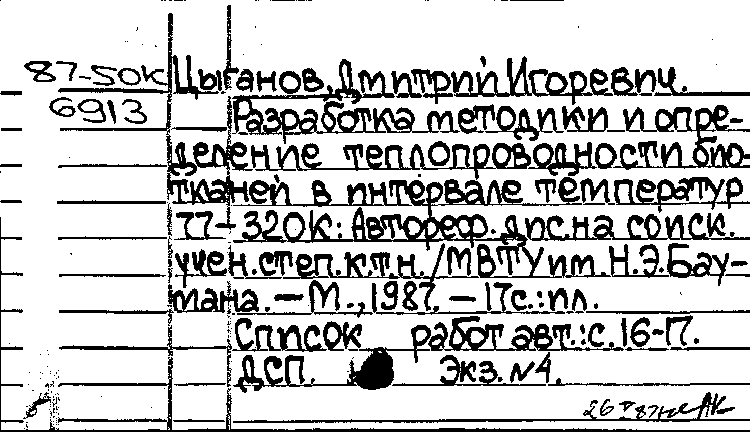 87-50К Цыганов, Дмитрий Игоревич.
6913 Разработка методики и опре-
деление теплопроводности био-
тканей в интервале температур
77-320К: Автореф. дис. на соиск.
учен. степ. к.т.н. /МВТУ им. Н.Э.Бау-
мана. — М., 1987. — 17с.: ил.
Список работ авт.: с. 16-17.
ДСП. Экз. №4.